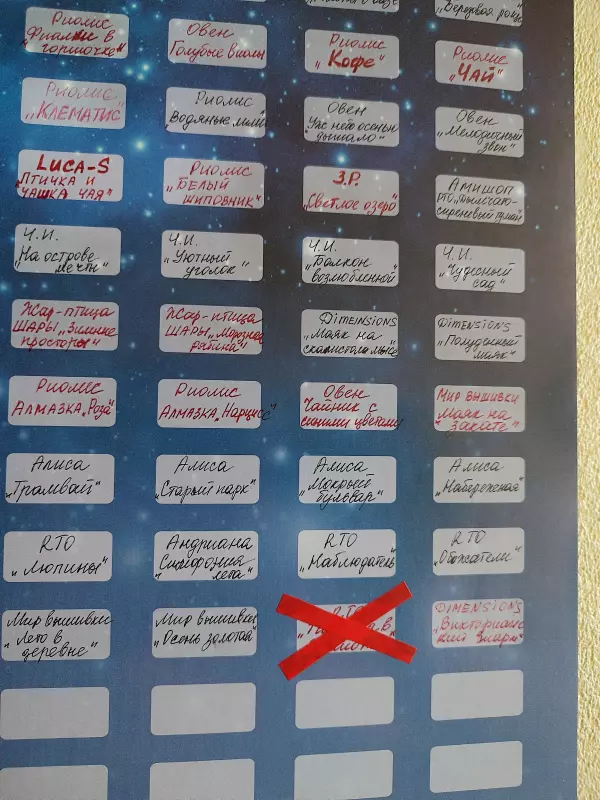 "Березовая роща
Риолис
"Фиалки в
горшочке"
Овен
"Голубые виолы
Риолис
"Кофе"
Риолис
"ЧАЙ"
Риолис
"КЛЕМАТИС"
Риолис
"Водяные лилии
Овен
"Уж небо осенью
дышало"
Овен
"Мелодичный
звон"
LUCA-S
"Птичка и
чашка чая"
Риолис
"БЕЛЫЙ
шиповник"
З.Р.
"Светлое озеро"
Амишоп
Ч.И.
"На острове
мечты"
Ч.И.
"Уютный
уголок"
Ч.И.
"Балкон
возлюбленной"
Ч.И.
"Чудесный
сад"
Жар-птица
ШАРЫ "Зимние
просторы"
Жар-птица
ШАРЫ "Морозная
DIMEINSIONS
"Маяк на
скалистом мысе
DIMENSIONS
"Полуденный
маяк"
Риолис
Алмазка "Роза"
Риолис
Алмазка "Нарцисс"
Овен
"Чайник с
синими цветами
Мир вышивки
"Маяк на
закате"
Алиса
"Трамвай"
Алиса
"Старый парк"
Алиса
"Мокрый
бульвар"
Алиса
"Набережная"
RTO
"Люпины"
Андриана
"Симфония
лета"
RTO
"Наблюдатель"
RTO
"Обожатели"
Мир вышивки
"Лето в
деревне"
Мир вышивки
"Осень золотая"
RTO
DIMENSIONS
"Викторианс
кий шарм"